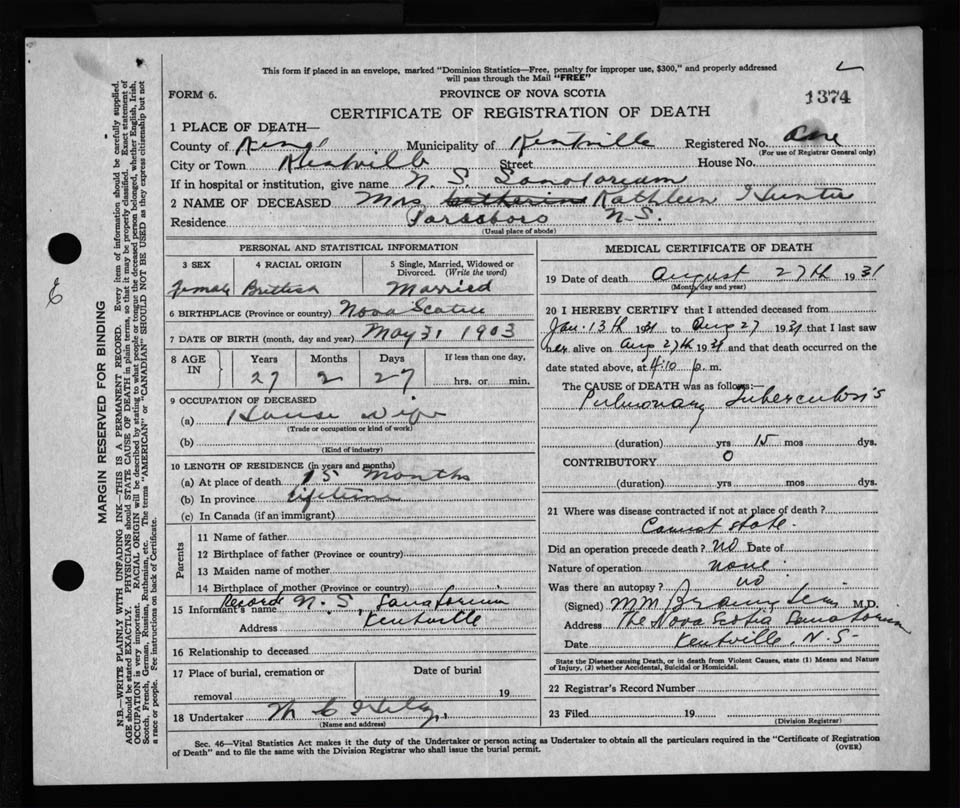 This form if placed in an envelope, marked "Dominion Statistics—Free, penalty for improper use, $300," and properly addressed
will pass through the Mail "FREE"
FORM 6.
PROVINCE OF NOVA SCOTIA
1374
CERTIFICATE OF REGISTRATION OF DEATH
1 PLACE OF DEATH—
County of Kings Municipality of Kentville Registered No.
(For use of Registrar General only)
City or Town Kentville Street House No.
If in hospital or institution, give name N. S. Sanatorium
2 NAME OF DECEASED Mrs Catherine Kathleen Hunter
Residence Parrsboro N.S.
(Usual place of abode)
PERSONAL AND STATISTICAL INFORMATION
3 SEX
4 RACIAL ORIGIN
5 Single, Married, Widowed or Divorced. (Write the word)
Female British Married
6 BIRTHPLACE (Province or country) Nova Scotia
7 DATE OF BIRTH (month, day and year) May 31 1903
8 AGE IN
Years Months Days If less than one day,
27 2 27 hrs. or min.
9 OCCUPATION OF DECEASED
(a) House Wife
(Trade or occupation or kind of work)
(b)
(Kind of industry)
10 LENGTH OF RESIDENCE (in years and months)
(a) At place of death 15 months
(b) In province lifetime
(c) In Canada (if an immigrant)
Parents
11 Name of father
12 Birthplace of father (Province or country)
13 Maiden name of mother
14 Birthplace of mother (Province or country)
15 Informant's name Records N. S. Sanatorium
Address Kentville
16 Relationship to deceased
17 Place of burial, cremation or removal
Date of burial
19
18 Undertaker
(Name and address)
MEDICAL CERTIFICATE OF DEATH
19 Date of death August 27th 1931
(Month, day and year)
20 I HEREBY CERTIFY that I attended deceased from
Jan. 13th 1931 to Aug 27 1931 that I last saw
her alive on Aug 27th 1931 and that death occurred on
date stated above, at 4:10 p. m.
The CAUSE OF DEATH was as follows:—
Pulmonary Tuberculosis
(duration) yrs 15 mos dys.
CONTRIBUTORY 0
(duration) yrs. mos. dys.
21 Where was disease contracted if not at place of death?
Cannot state.
Did an operation precede death? no Date of
Nature of operation none
Was there an autopsy? no
(Signed) M.D.
Address The Nova Scotia Sanatorium
Date Kentville N.S-
State the Disease causing Death, or in death from Violent Causes, state (1) Means and Nature
of Injury, (2) whether Accidental, Suicidal or Homicidal.
22 Registrar's Record Number
23 Filed 19
(Division Registrar)
Sec. 46—Vital Statistics Act makes it the duty of the Undertaker or person acting as Undertaker to obtain all the particulars required in the "Certificate of Registration
of Death" and to file the same with the Division Registrar who shall issue the burial permit.
(OVER)
MARGIN RESERVED FOR BINDING
N.B.—WRITE PLAINLY WITH UNFADING INK—THIS IS A PERMANENT RECORD. Every item of information should be carefully supplied.
AGE should be stated EXACTLY. PHYSICIANS should STATE CAUSE OF DEATH in plain terms, so that it may be properly classified. Exact statement of
OCCUPATION is very important. RACIAL ORIGIN will be described by stating to what people or tongue the deceased person belonged, whether English, Irish,
Scotch, French, German, Russian, Ruthenian, etc. The terms "AMERICAN" or "CANADIAN" SHOULD NOT BE USED as they express citizenship but not
a race or people. See instructions on back of Certificate.